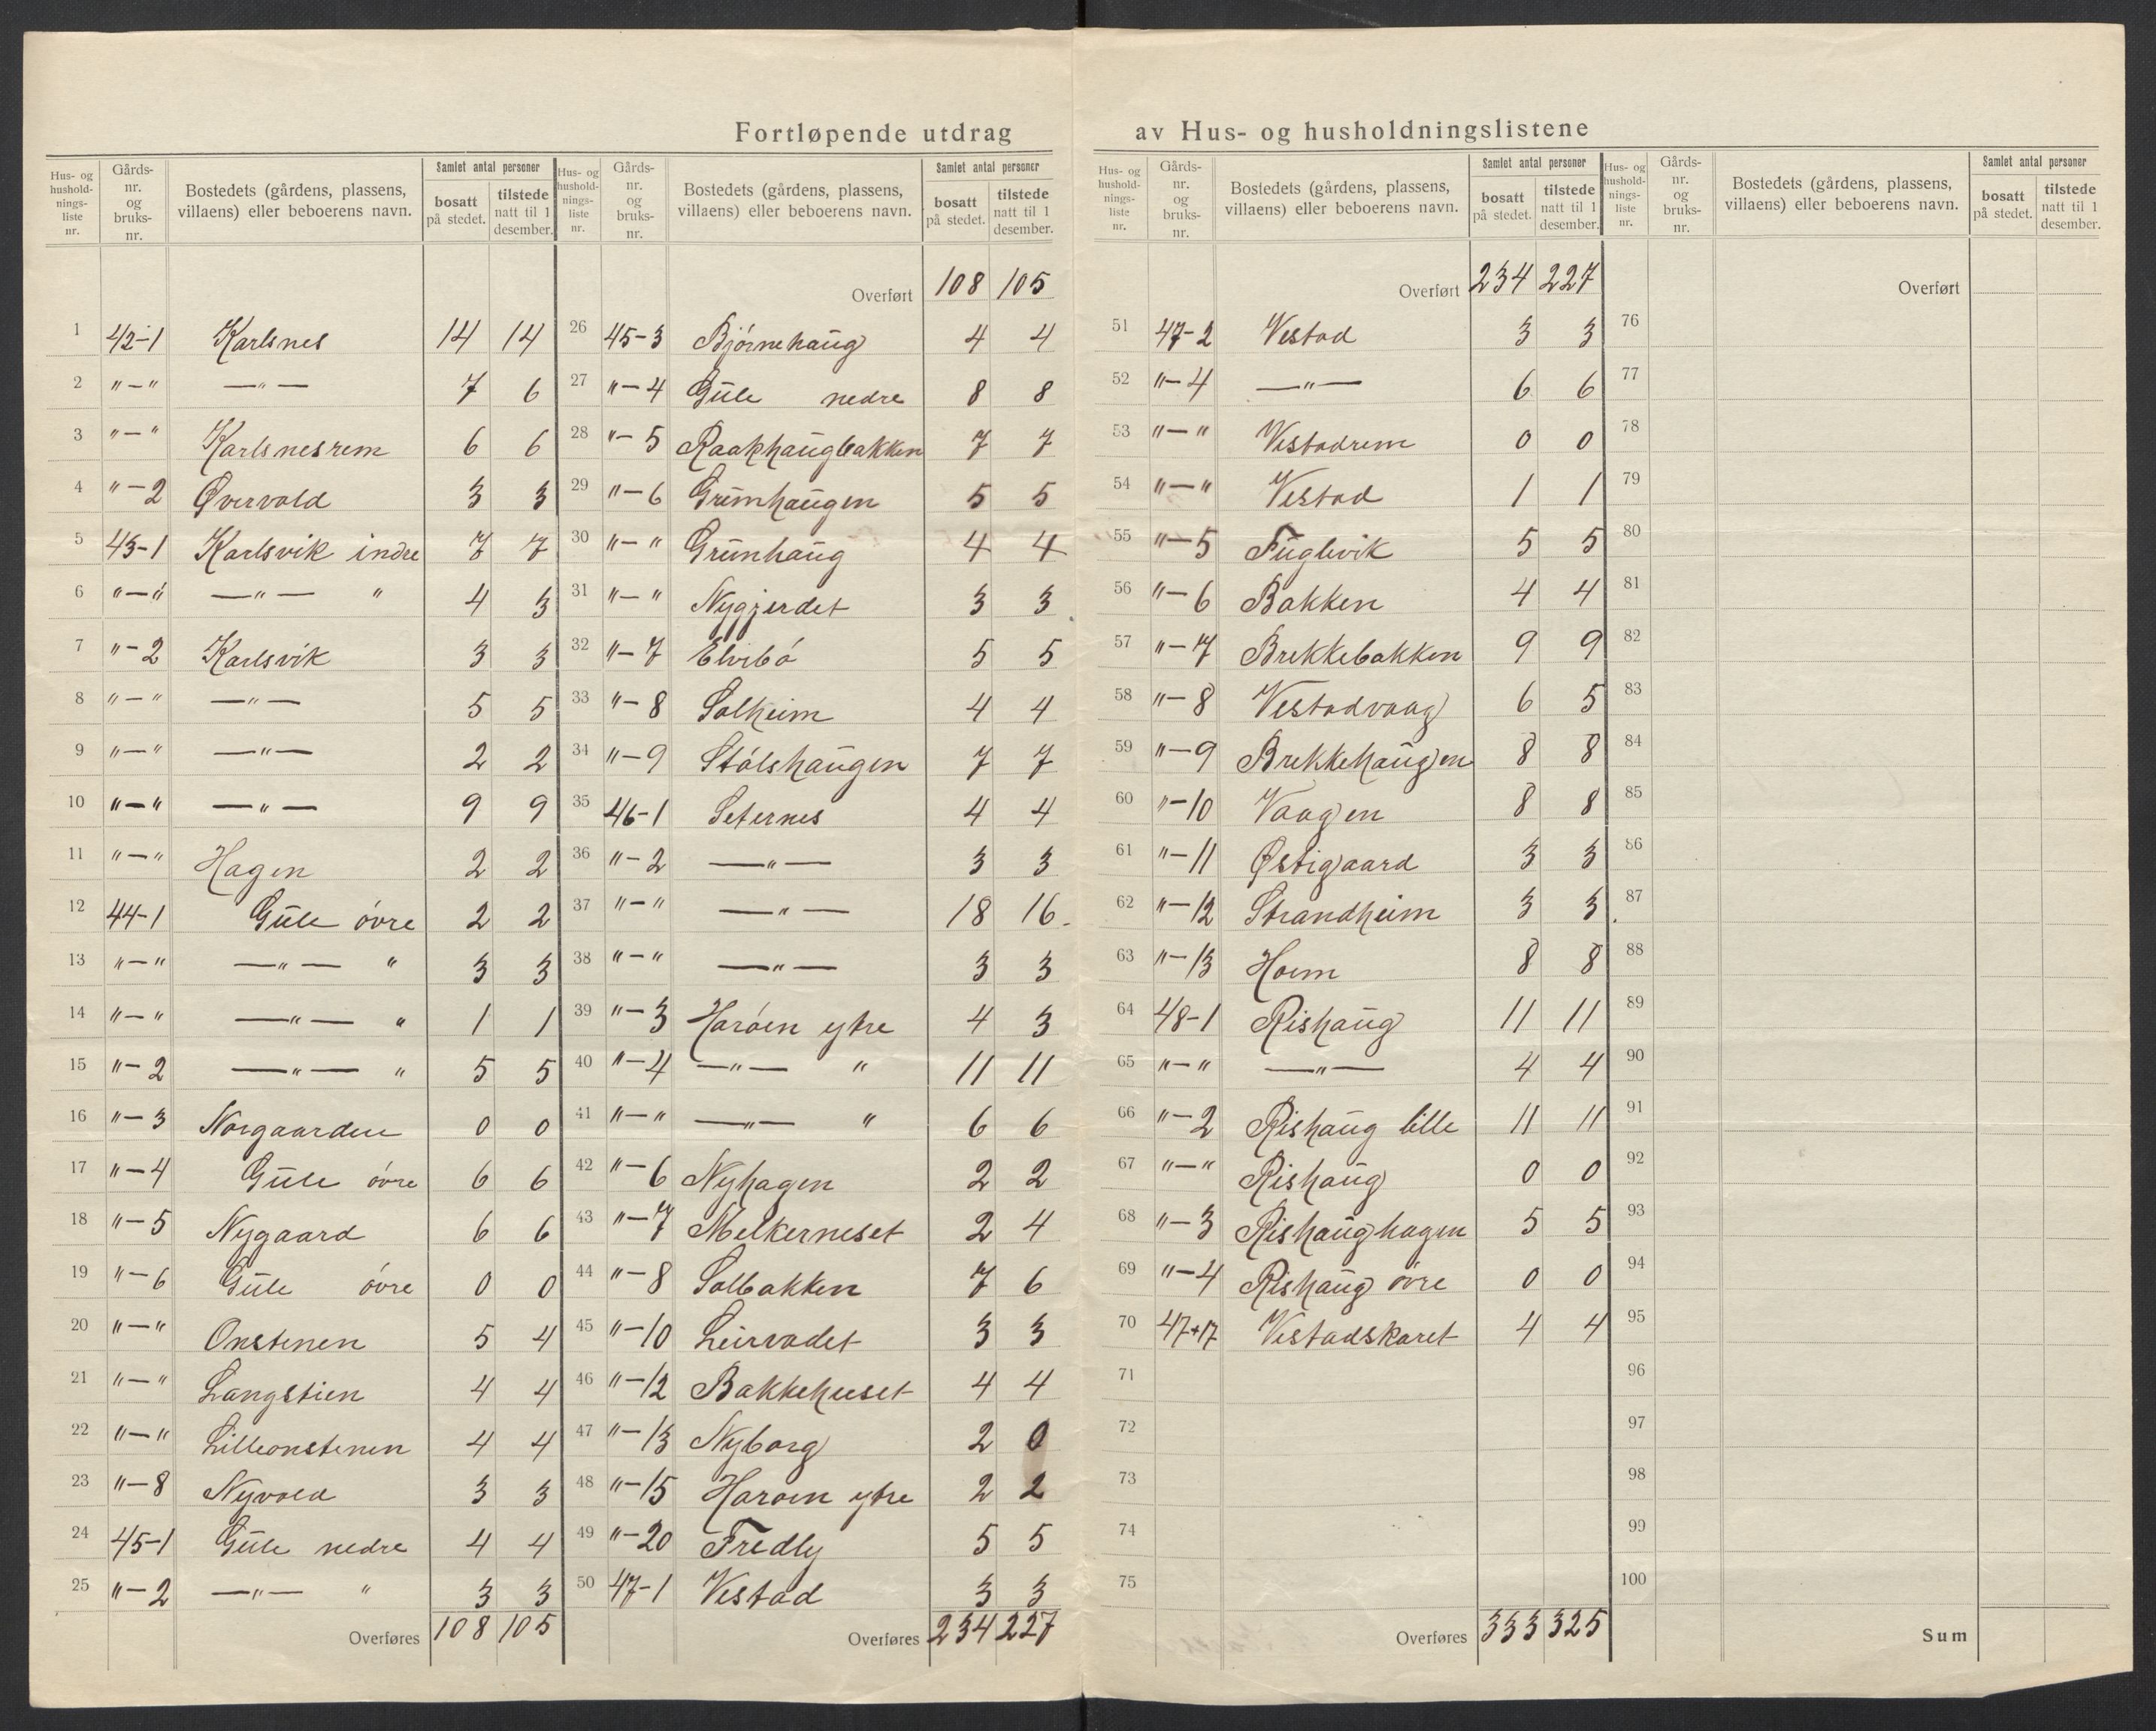 Fortløpende utdrag av Hus- og husholdningslistene
Hus- og hushold-nings-liste nr. | Gårds-nr. og bruks-nr. | Bostedets (gårdens, plassens, villaens) eller beboerens navn. | Samlet antal personer | bosatt på stedet. | tilstede natt til 1 desember.
1 42-1 Karlsnes 14 14
2 "-" —"— 7 6
3 "-" Karlsnesrem 6 6
4 "-2 Øvervold 3 3
5 43-1 Karlsvik indre 7 7
6 "-" —"— " 4 3
7 "-2 Karlsvik 3 3
8 "-" —"— 5 5
9 "-" —"— 2 2
10 "-" —"— 9 9
11 "-" Hagen 2 2
12 44-1 Gule øvre 2 2
13 "-" —"— " 3 3
14 "-" —"— " 1 1
15 "-2 —"— " 5 5
16 "-3 Norgaarden 0 0
17 "-4 Gule øvre 6 6
18 "-5 Nygaard 6 6
19 "-6 Gule øvre 0 0
20 "-" Onstenen 5 4
21 "-" Langstien 4 4
22 "-" Lilleonstenen 4 4
23 "-8 Nyvold 3 3
24 45-1 Gule nedre 4 4
25 "-2 —"— " 3 3
Overføres 108 105
Hus- og hushold-nings-liste nr. | Gårds-nr. og bruks-nr. | Bostedets (gårdens, plassens, villaens) eller beboerens navn. | Samlet antal personer | bosatt på stedet. | tilstede natt til 1 desember.
Overført 108 105
26 45-3 Bjørnehaug 4 4
27 "-4 Gule nedre 8 8
28 "-5 Raakhaugbakken 7 7
29 "-6 Grunhaugen 5 5
30 "-" Grunhaug 4 4
31 "-" Nygjerdet 3 3
32 "-7 Elvibø 5 5
33 "-8 Solheim 4 4
34 "-9 Stølshaugen 7 7
35 46-1 Seternes 4 4
36 "-2 —"— 3 3
37 "-" —"— 18 16
38 "-" —"— 3 3
39 "-3 Harøen ytre 4 3
40 "-4 —"— " 11 11
41 "-" —"— " 6 6
42 "-6 Nyhagen 2 2
43 "-7 Melkerneset 2 4
44 "-8 Solbakken 7 6
45 "-10 Leirvadet 3 3
46 "-12 Bakkehuset 4 4
47 "-13 Nyborg 2 0
48 "-15 Harøen ytre 2 2
49 "-20 Fredly 5 5
50 47-1 Vestad 3 3
Overføres 234 227
Hus- og hushold-nings-liste nr. | Gårds-nr. og bruks-nr. | Bostedets (gårdens, plassens, villaens) eller beboerens navn. | Samlet antal personer | bosatt på stedet. | tilstede natt til 1 desember.
Overført 234 227
51 47-2 Vestad 3 3
52 "-4 —"— 6 6
53 "-" Vestadrem 0 0
54 "-" Vestad 1 1
55 "-5 Fuglevik 5 5
56 "-6 Bakken 4 4
57 "-7 Brekkebakken 9 9
58 "-8 Vestadvaag 6 5
59 "-9 Brekkehaugen 8 8
60 "-10 Vaagen 8 8
61 "-11 Østigaard 3 3
62 "-12 Strandheim 3 3
63 "-13 Hoem 8 8
64 48-1 Rishaug 11 11
65 "-" —"— 4 4
66 "-2 Rishaug lille 11 11
67 "-" Rishaug 0 0
68 "-3 Rishaughagen 5 5
69 "-4 Rishaug øvre 0 0
70 47+17 Vestadskaret 4 4
71
72
73
74
75
Overføres 333 325
Hus- og hushold-nings-liste nr. | Gårds-nr. og bruks-nr. | Bostedets (gårdens, plassens, villaens) eller beboerens navn. | Samlet antal personer | bosatt på stedet. | tilstede natt til 1 desember.
Overført
76
77
78
79
80
81
82
83
84
85
86
87
88
89
90
91
92
93
94
95
96
97
98
99
100
Sum